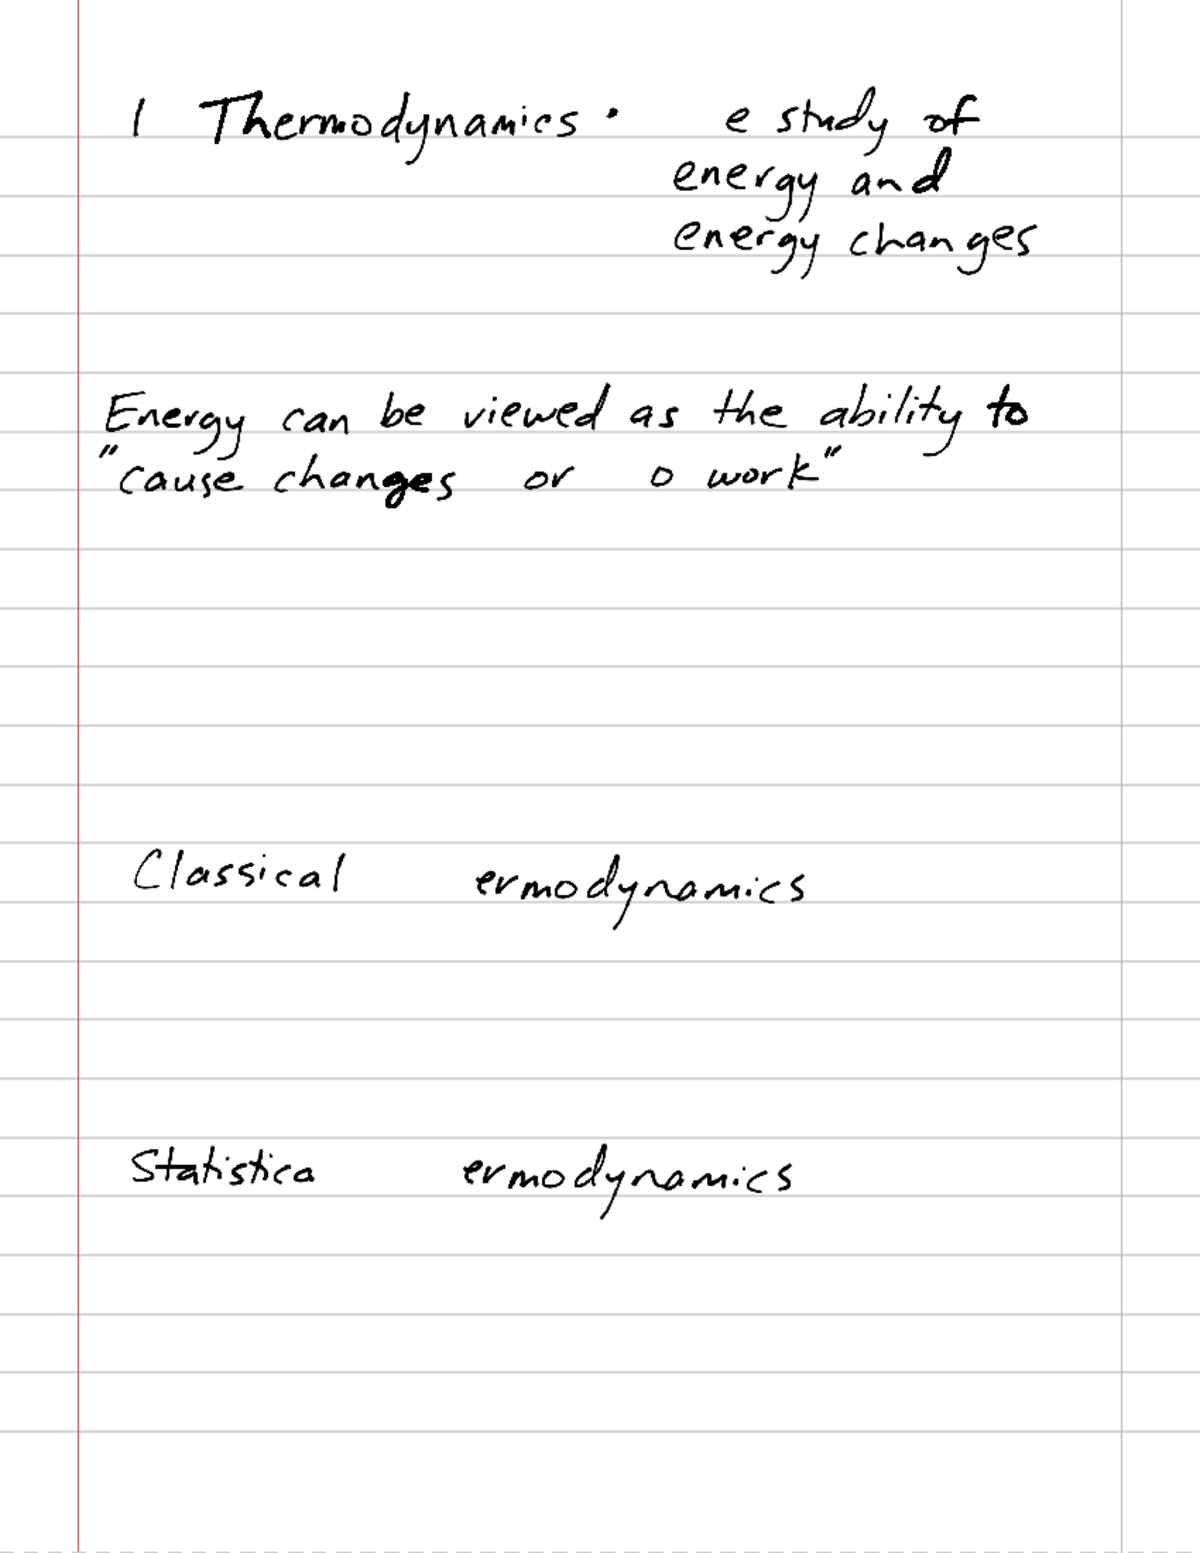 1 Thermodynamics · e study of
energy and
energy changes
Energy can be viewed as the ability to
"cause changes or o work"
Classical ermodynamics
Statistica ermodynamics